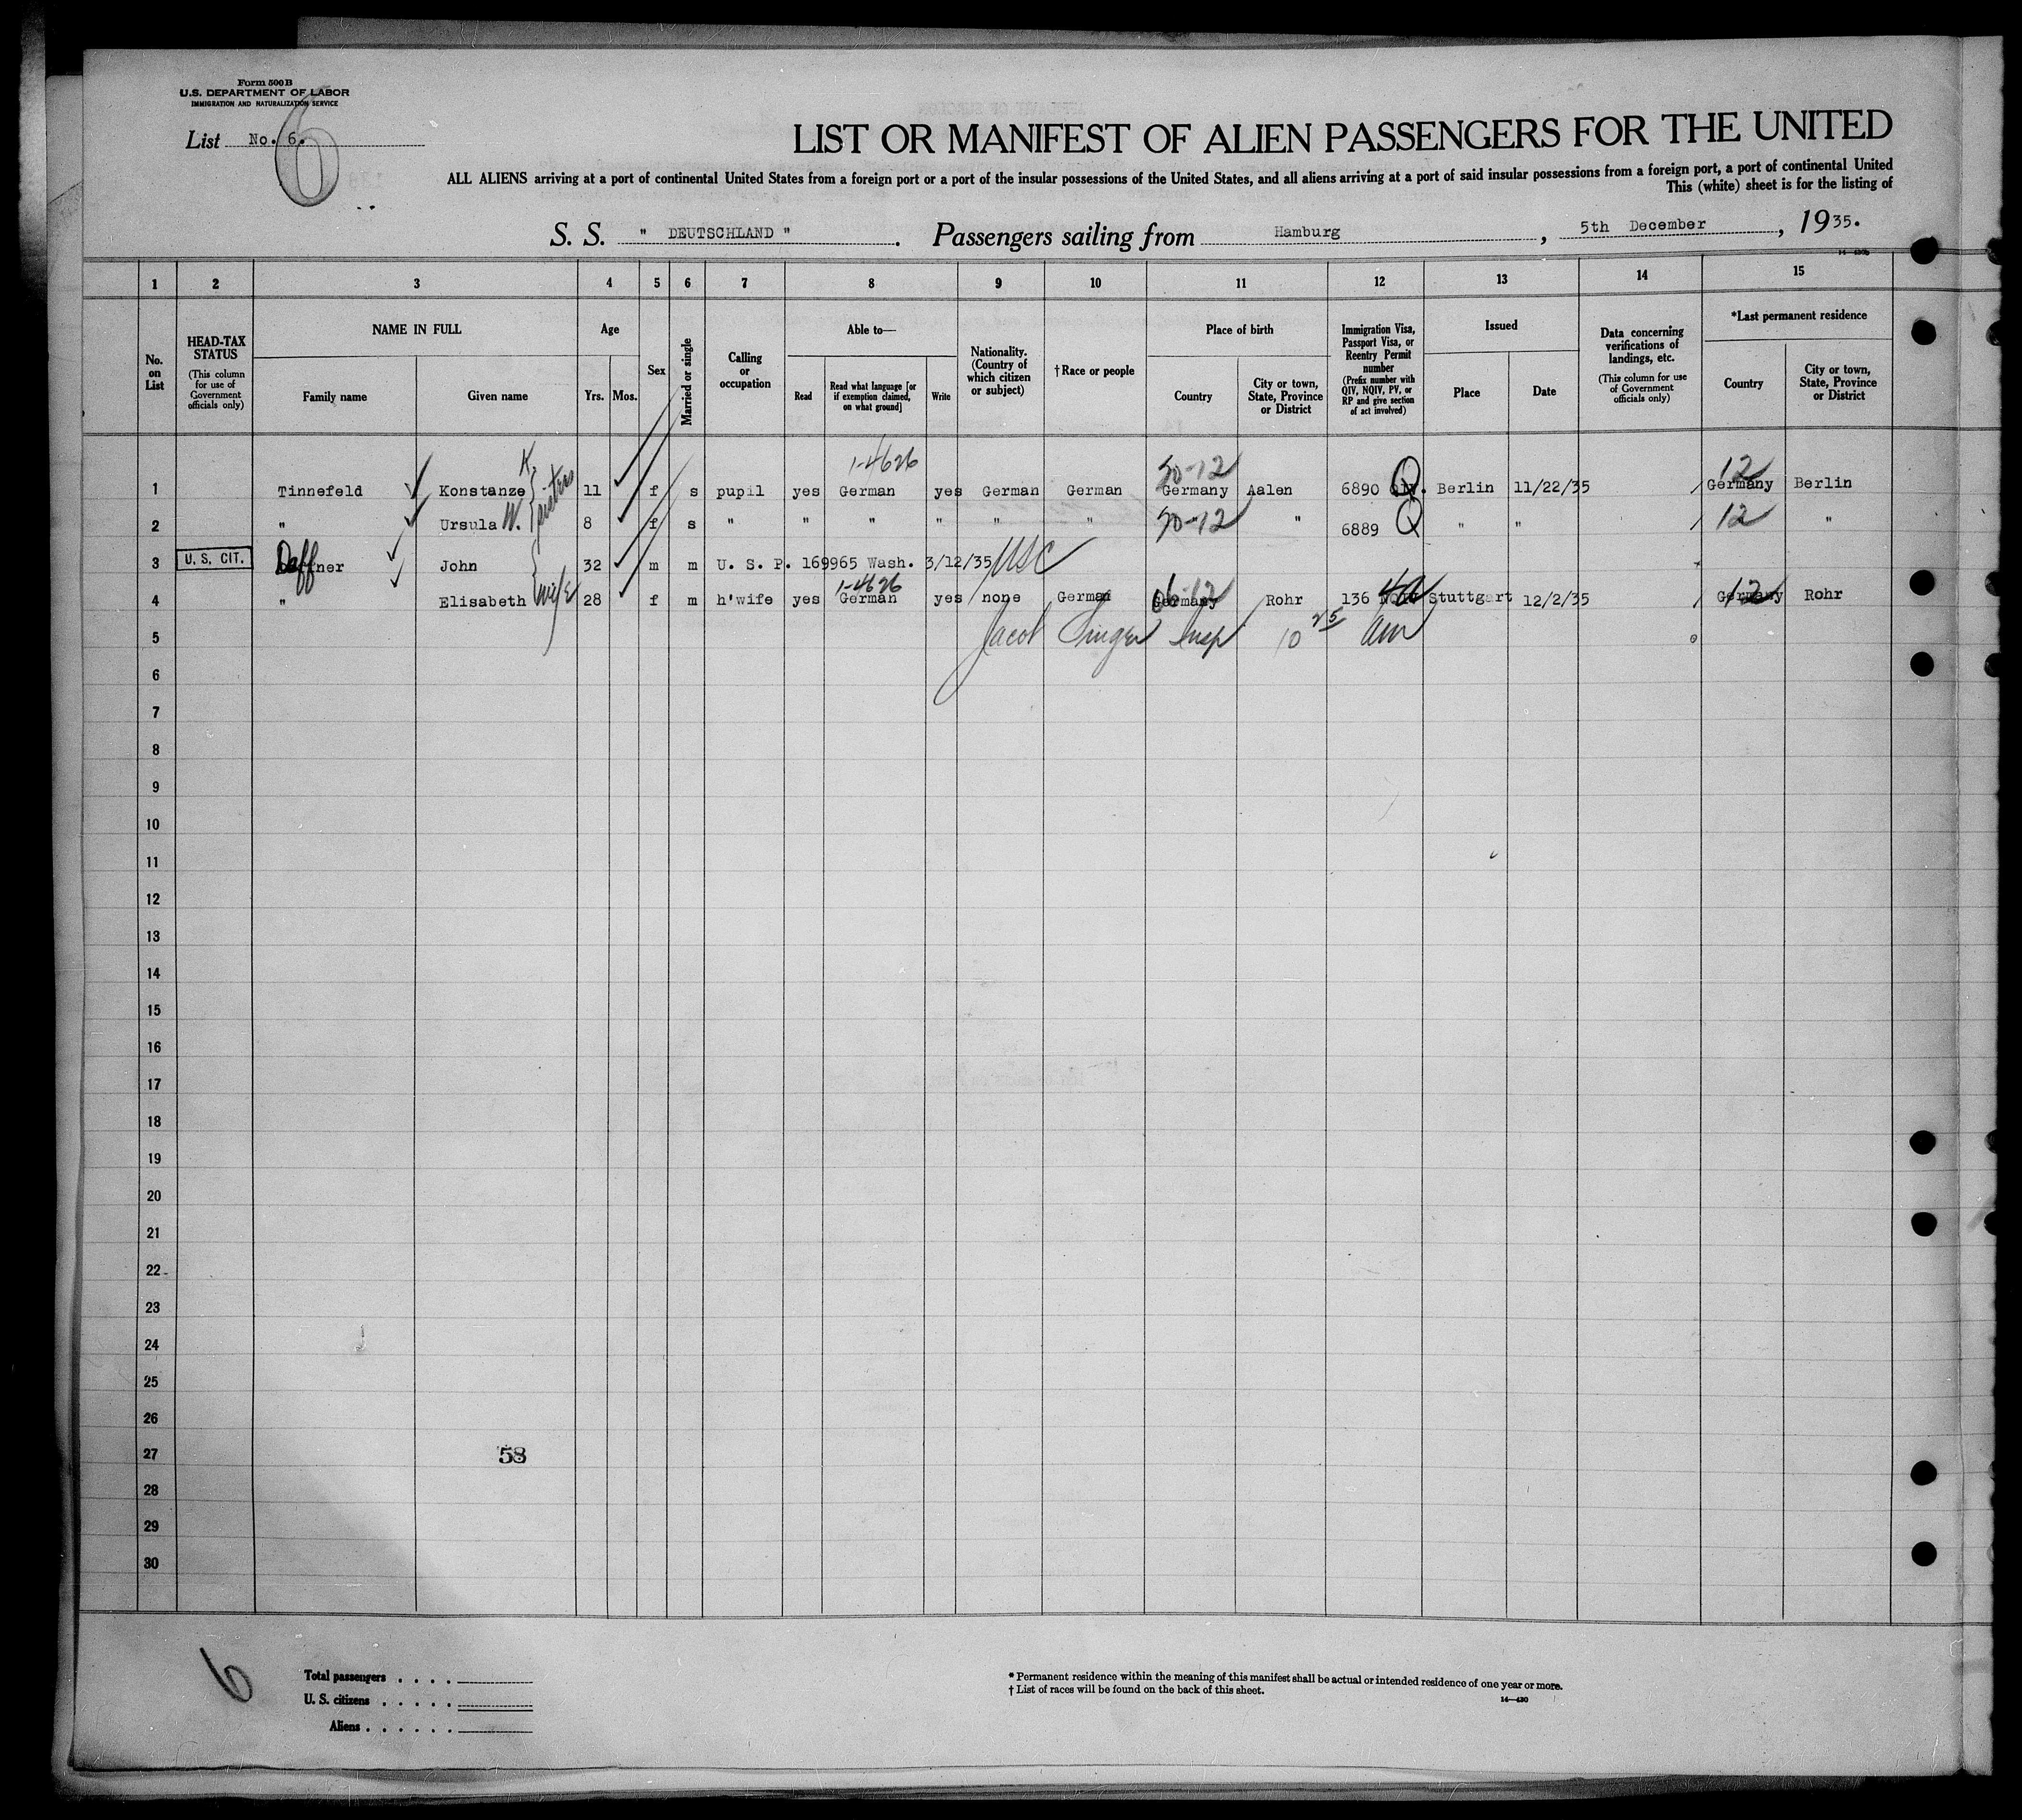 Form 500 B
U.S. DEPARTMENT OF LABOR
IMMIGRATION AND NATURALIZATION SERVICE
List No. 6.
6
LIST OR MANIFEST OF ALIEN PASSENGERS FOR THE UNITED
ALL ALIENS arriving at a port of continental United States from a foreign port or a port of the insular possessions of the United States, and all aliens arriving at a port of said insular possessions from a foreign port, a port of continental United
This (white) sheet is for the listing of
S. S. " DEUTSCHLAND ". Passengers sailing from Hamburg, 5th December, 1935.
1 2 3 4 5 6 7 8 9 10 11 12 13 14 15
No. on List
HEAD-TAX STATUS
(This column for use of Government officials only)
NAME IN FULL
Family name Given name
Age
Yrs. Mos.
Sex
Married or single
Calling or occupation
Able to—
Read
Read what language [or if exemption claimed, on what ground]
Write
Nationality. (Country of which citizen or subject)
† Race or people
Place of birth
Country
City or town, State, Province or District
Immigration Visa, Passport Visa, or Reentry Permit number
(Prefix number with QIV, NQIV, PV, or RP and give section of act involved)
Issued
Place Date
Data concerning verifications of landings, etc.
(This column for use of Government officials only)
*Last permanent residence
Country
City or town, State, Province or District
K. 1-4626 12
1 Tinnefeld Konstanze sisters 11 f s pupil yes German yes German German Germany Aalen 6890 Q Berlin 11/22/35 Germany Berlin
2 " Ursula W. 8 f s " " " " " " " 6889 Q " " 12 "
3 U. S. CIT. Deffner John 32 m m U. S. P. 169965 Wash. 3/12/35 USC
1-4626 12
4 " Elisabeth wife 28 f m h'wife yes German yes none German Germany Rohr 136 Stuttgart 12/2/35 Germany Rohr
5 Jacob Singer Insp 10 25 am
6
7
8
9
10
11
12
13
14
15
16
17
18
19
20
21
22
23
24
25
26
27 58
28
29
30
6
Total passengers . . . .
U. S. citizens . . . . .
Aliens . . . . . .
* Permanent residence within the meaning of this manifest shall be actual or intended residence of one year or more.
† List of races will be found on the back of this sheet.
14—430